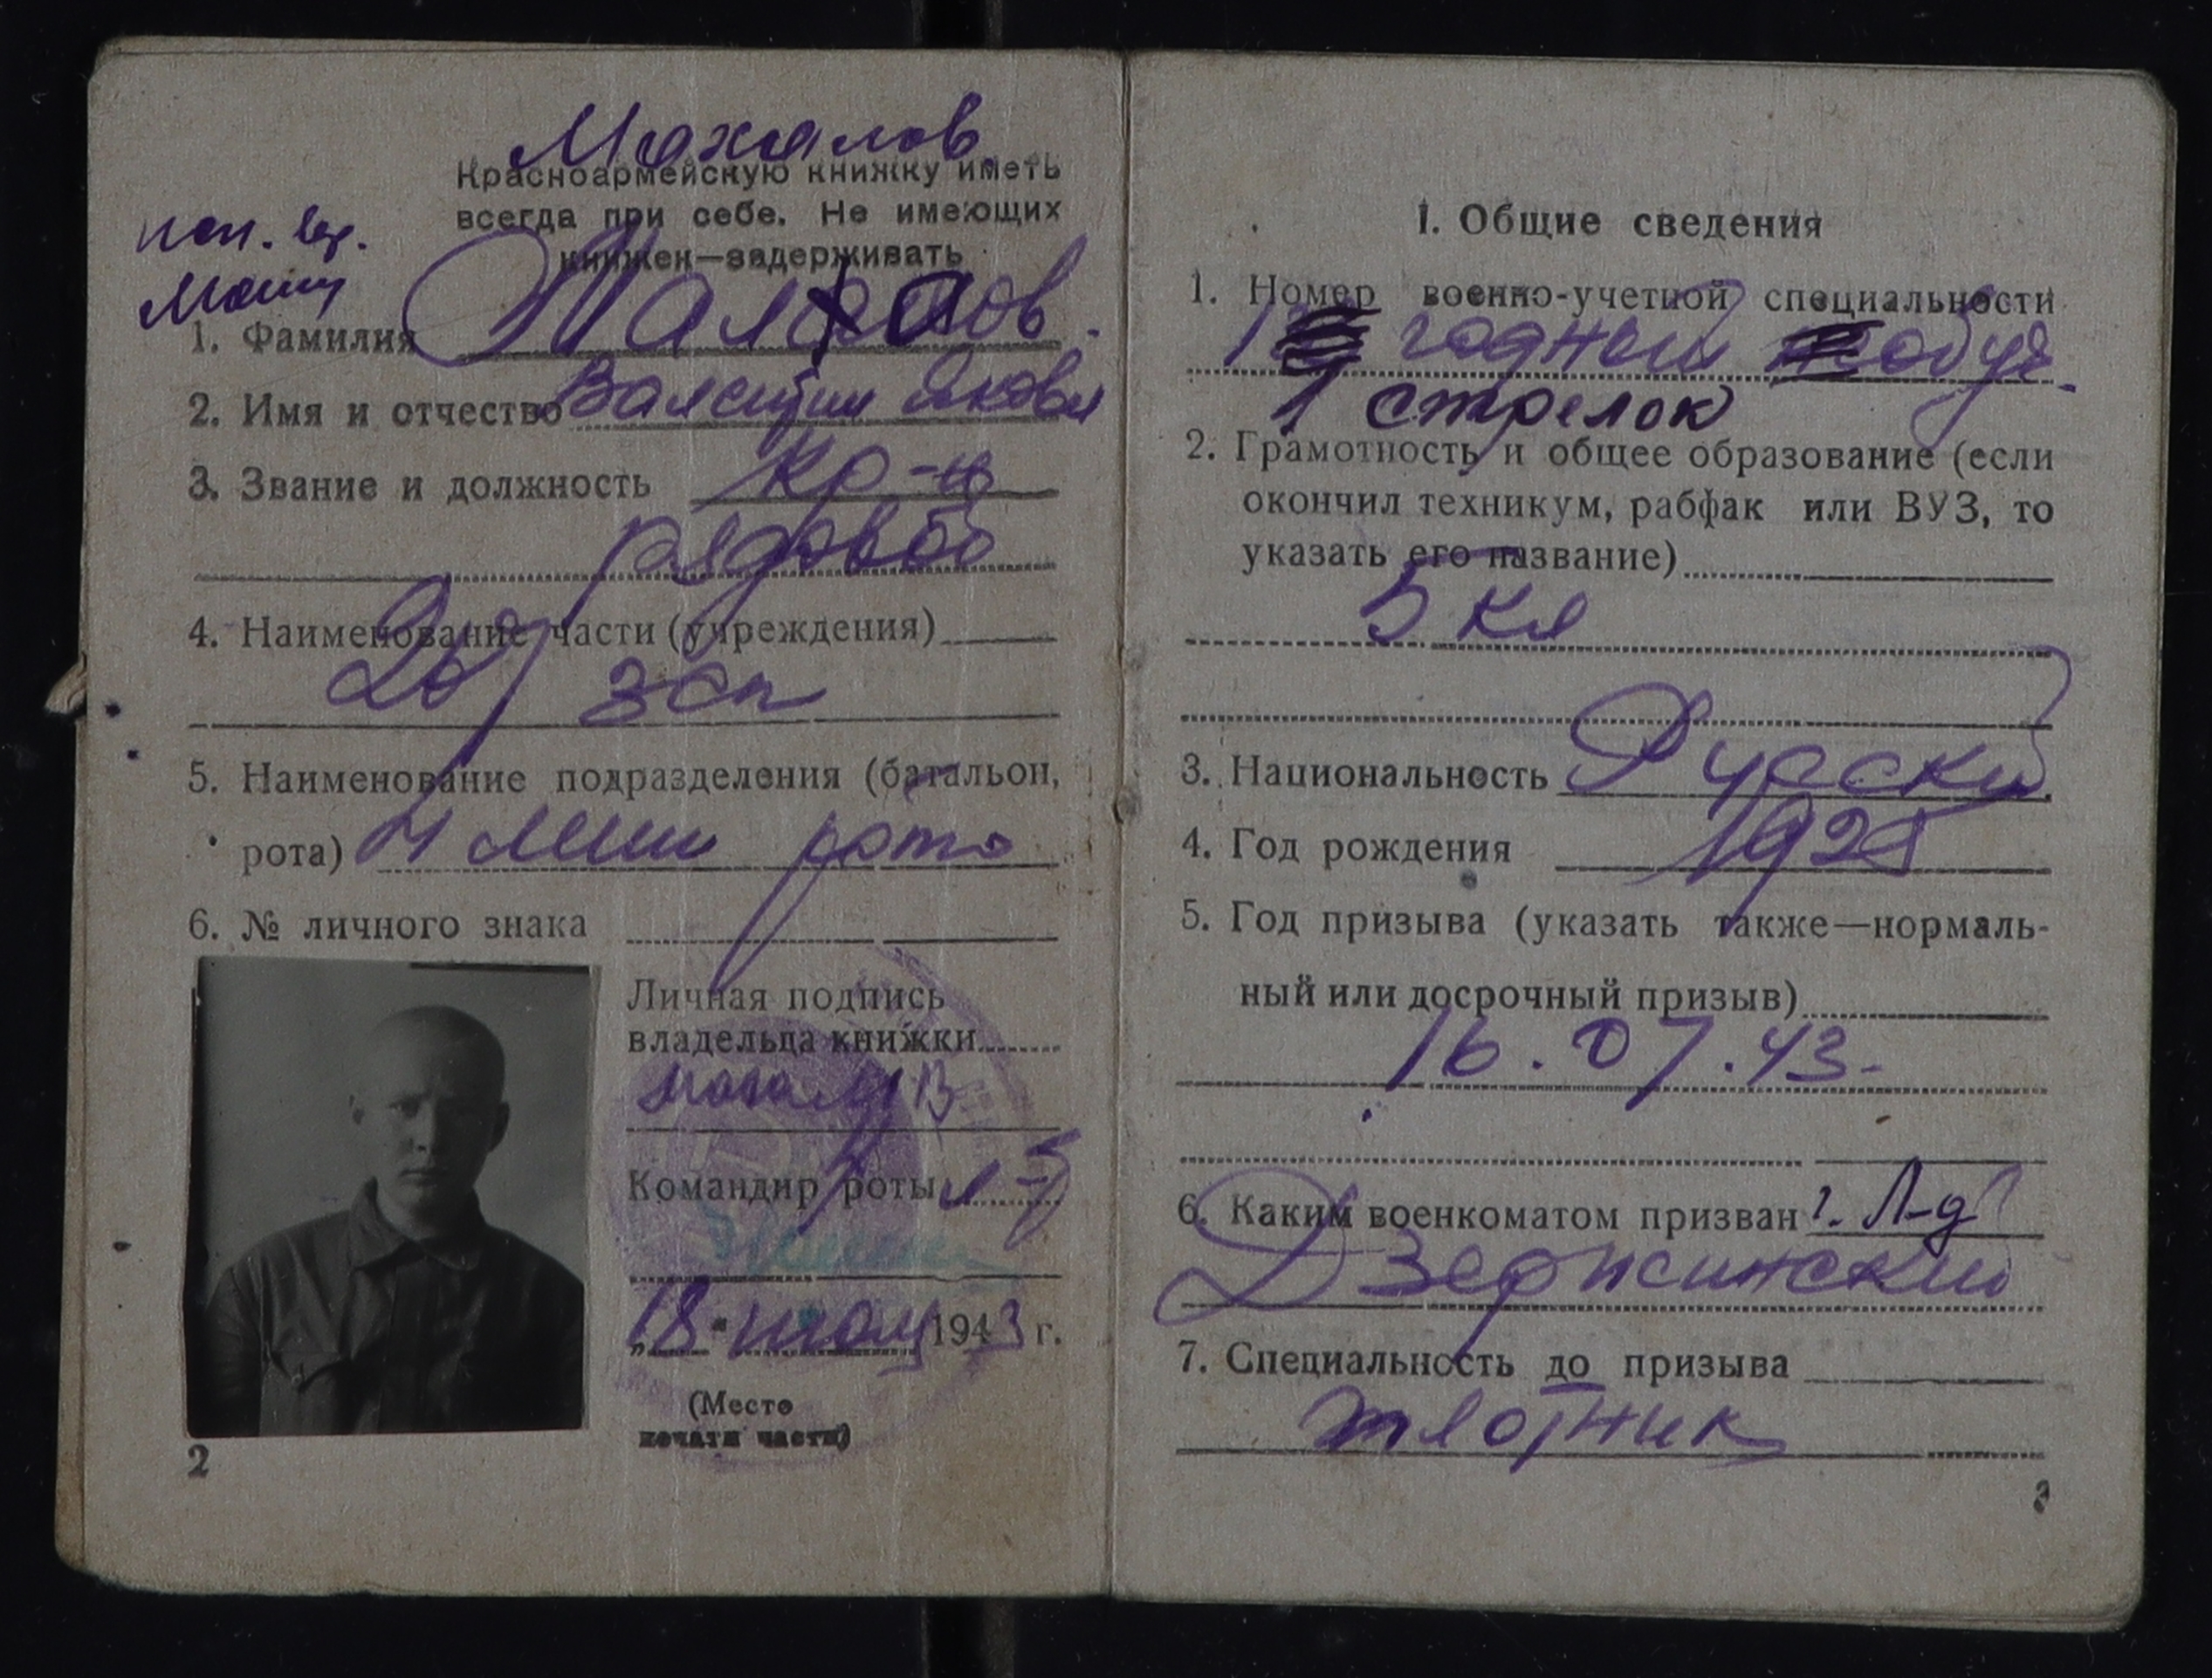 Махалов
Красноармейскую книжку иметь
всегда при себе. Не имеющих
книжек—задерживать
исп. вер.
1. Фамилия
2. Имя и отчество Валентин Яковл
3. Звание и должность кр-ц
рядовой
4. Наименование части (учреждения)
зсп
5. Наименование подразделения (батальон,
рота) 4 мин рота
6. № личного знака
Личная подпись
владельца книжки
Командир роты л-т
„18“ июля 1943 г.
(Место
печати части)
2
I. Общие сведения
1. Номер военно-учетной специальности
1 годный
1 стрелок
2. Грамотность и общее образование (если
окончил техникум, рабфак или ВУЗ, то
указать его название)
5 кл
3. Национальность Руский
4. Год рождения 1925
5. Год призыва (указать также—нормаль-
ный или досрочный призыв)
16.07.43.
6. Каким военкоматом призван г. Л-д
Дзержинский
7. Специальность до призыва
плотник
3